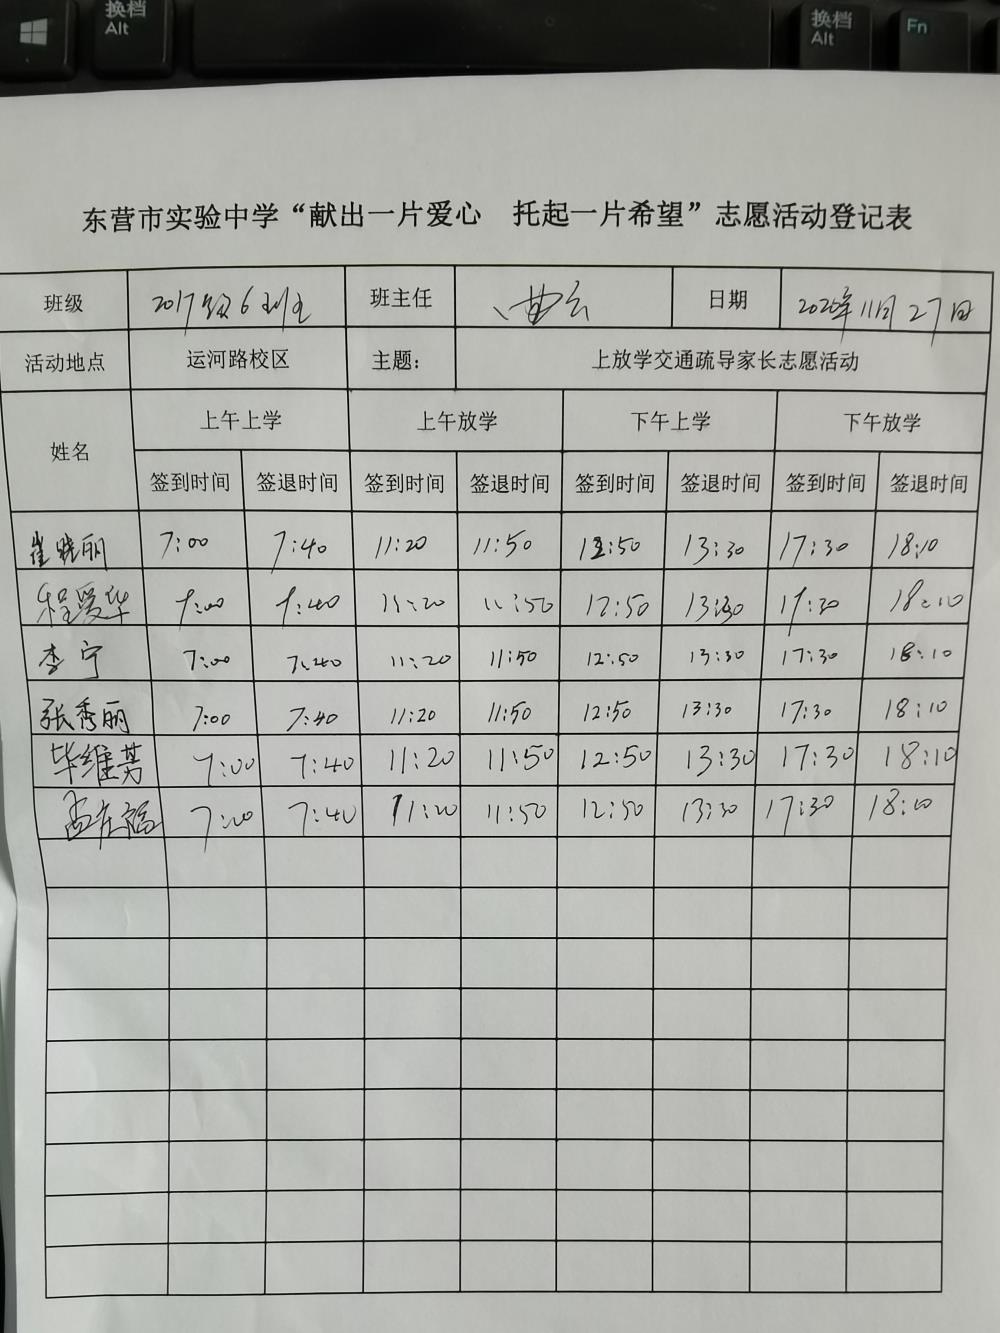 换档
Alt
换档
Alt
Fn
东营市实验中学“献出一片爱心 托起一片希望”志愿活动登记表
班级 2017级6班 班主任 曲云 日期 2020年11月27日
活动地点 运河路校区 主题： 上放学交通疏导家长志愿活动
姓名 上午上学 上午放学 下午上学 下午放学
签到时间 签退时间 签到时间 签退时间 签到时间 签退时间 签到时间 签退时间
崔晓丽 7:00 7:40 11:20 11:50 12:50 13:30 17:30 18:10
程爱华 7:00 7:40 11:20 11:50 12:50 13:30 17:30 18:10
李宁 7:00 7:40 11:20 11:50 12:50 13:30 17:30 18:10
张秀丽 7:00 7:40 11:20 11:50 12:50 13:30 17:30 18:10
毕维芳 7:00 7:40 11:20 11:50 12:50 13:30 17:30 18:10
7:00 7:40 11:20 11:50 12:50 13:30 17:30 18:10